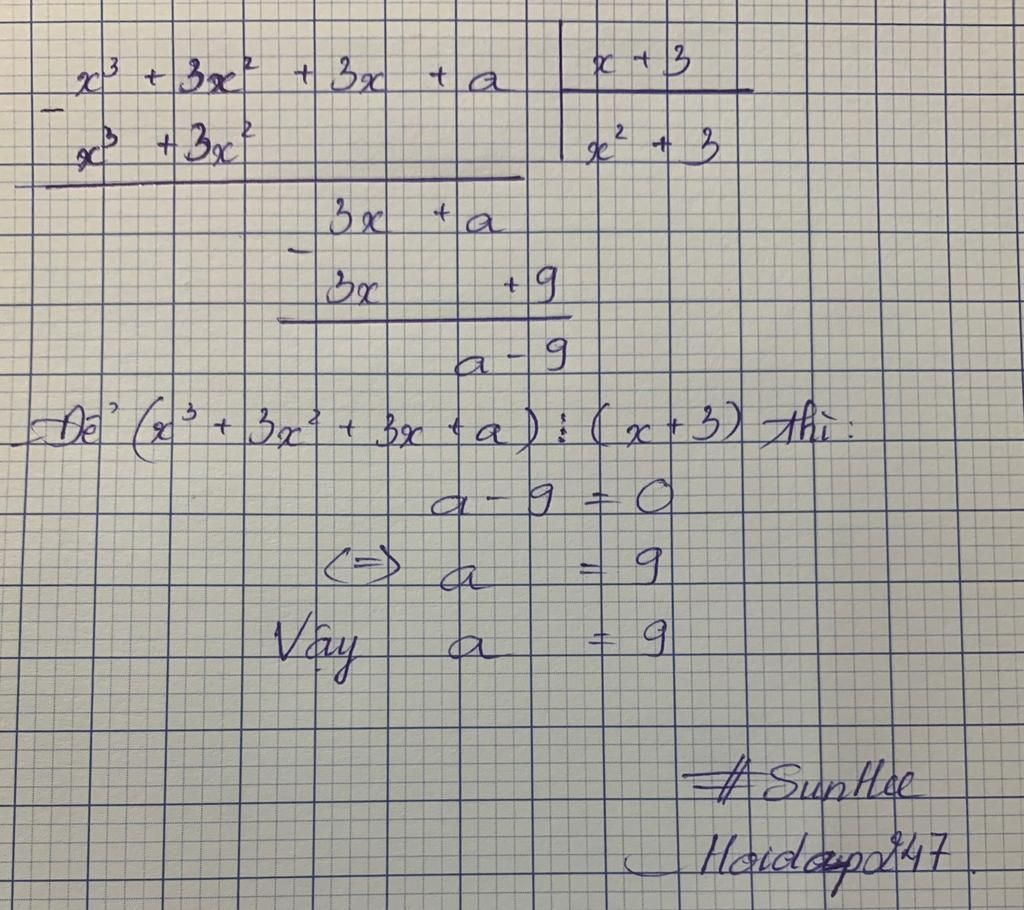 x³ + 3x² + 3x + a | x + 3
- x³ + 3x² | x² + 3
3x + a
- 3x + 9
a - 9
Để (x³ + 3x² + 3x + a) ⋮ (x + 3) thì:
a - 9 = 0
<=> a = 9
Vậy a = 9
# SunHee
Hoidap247.